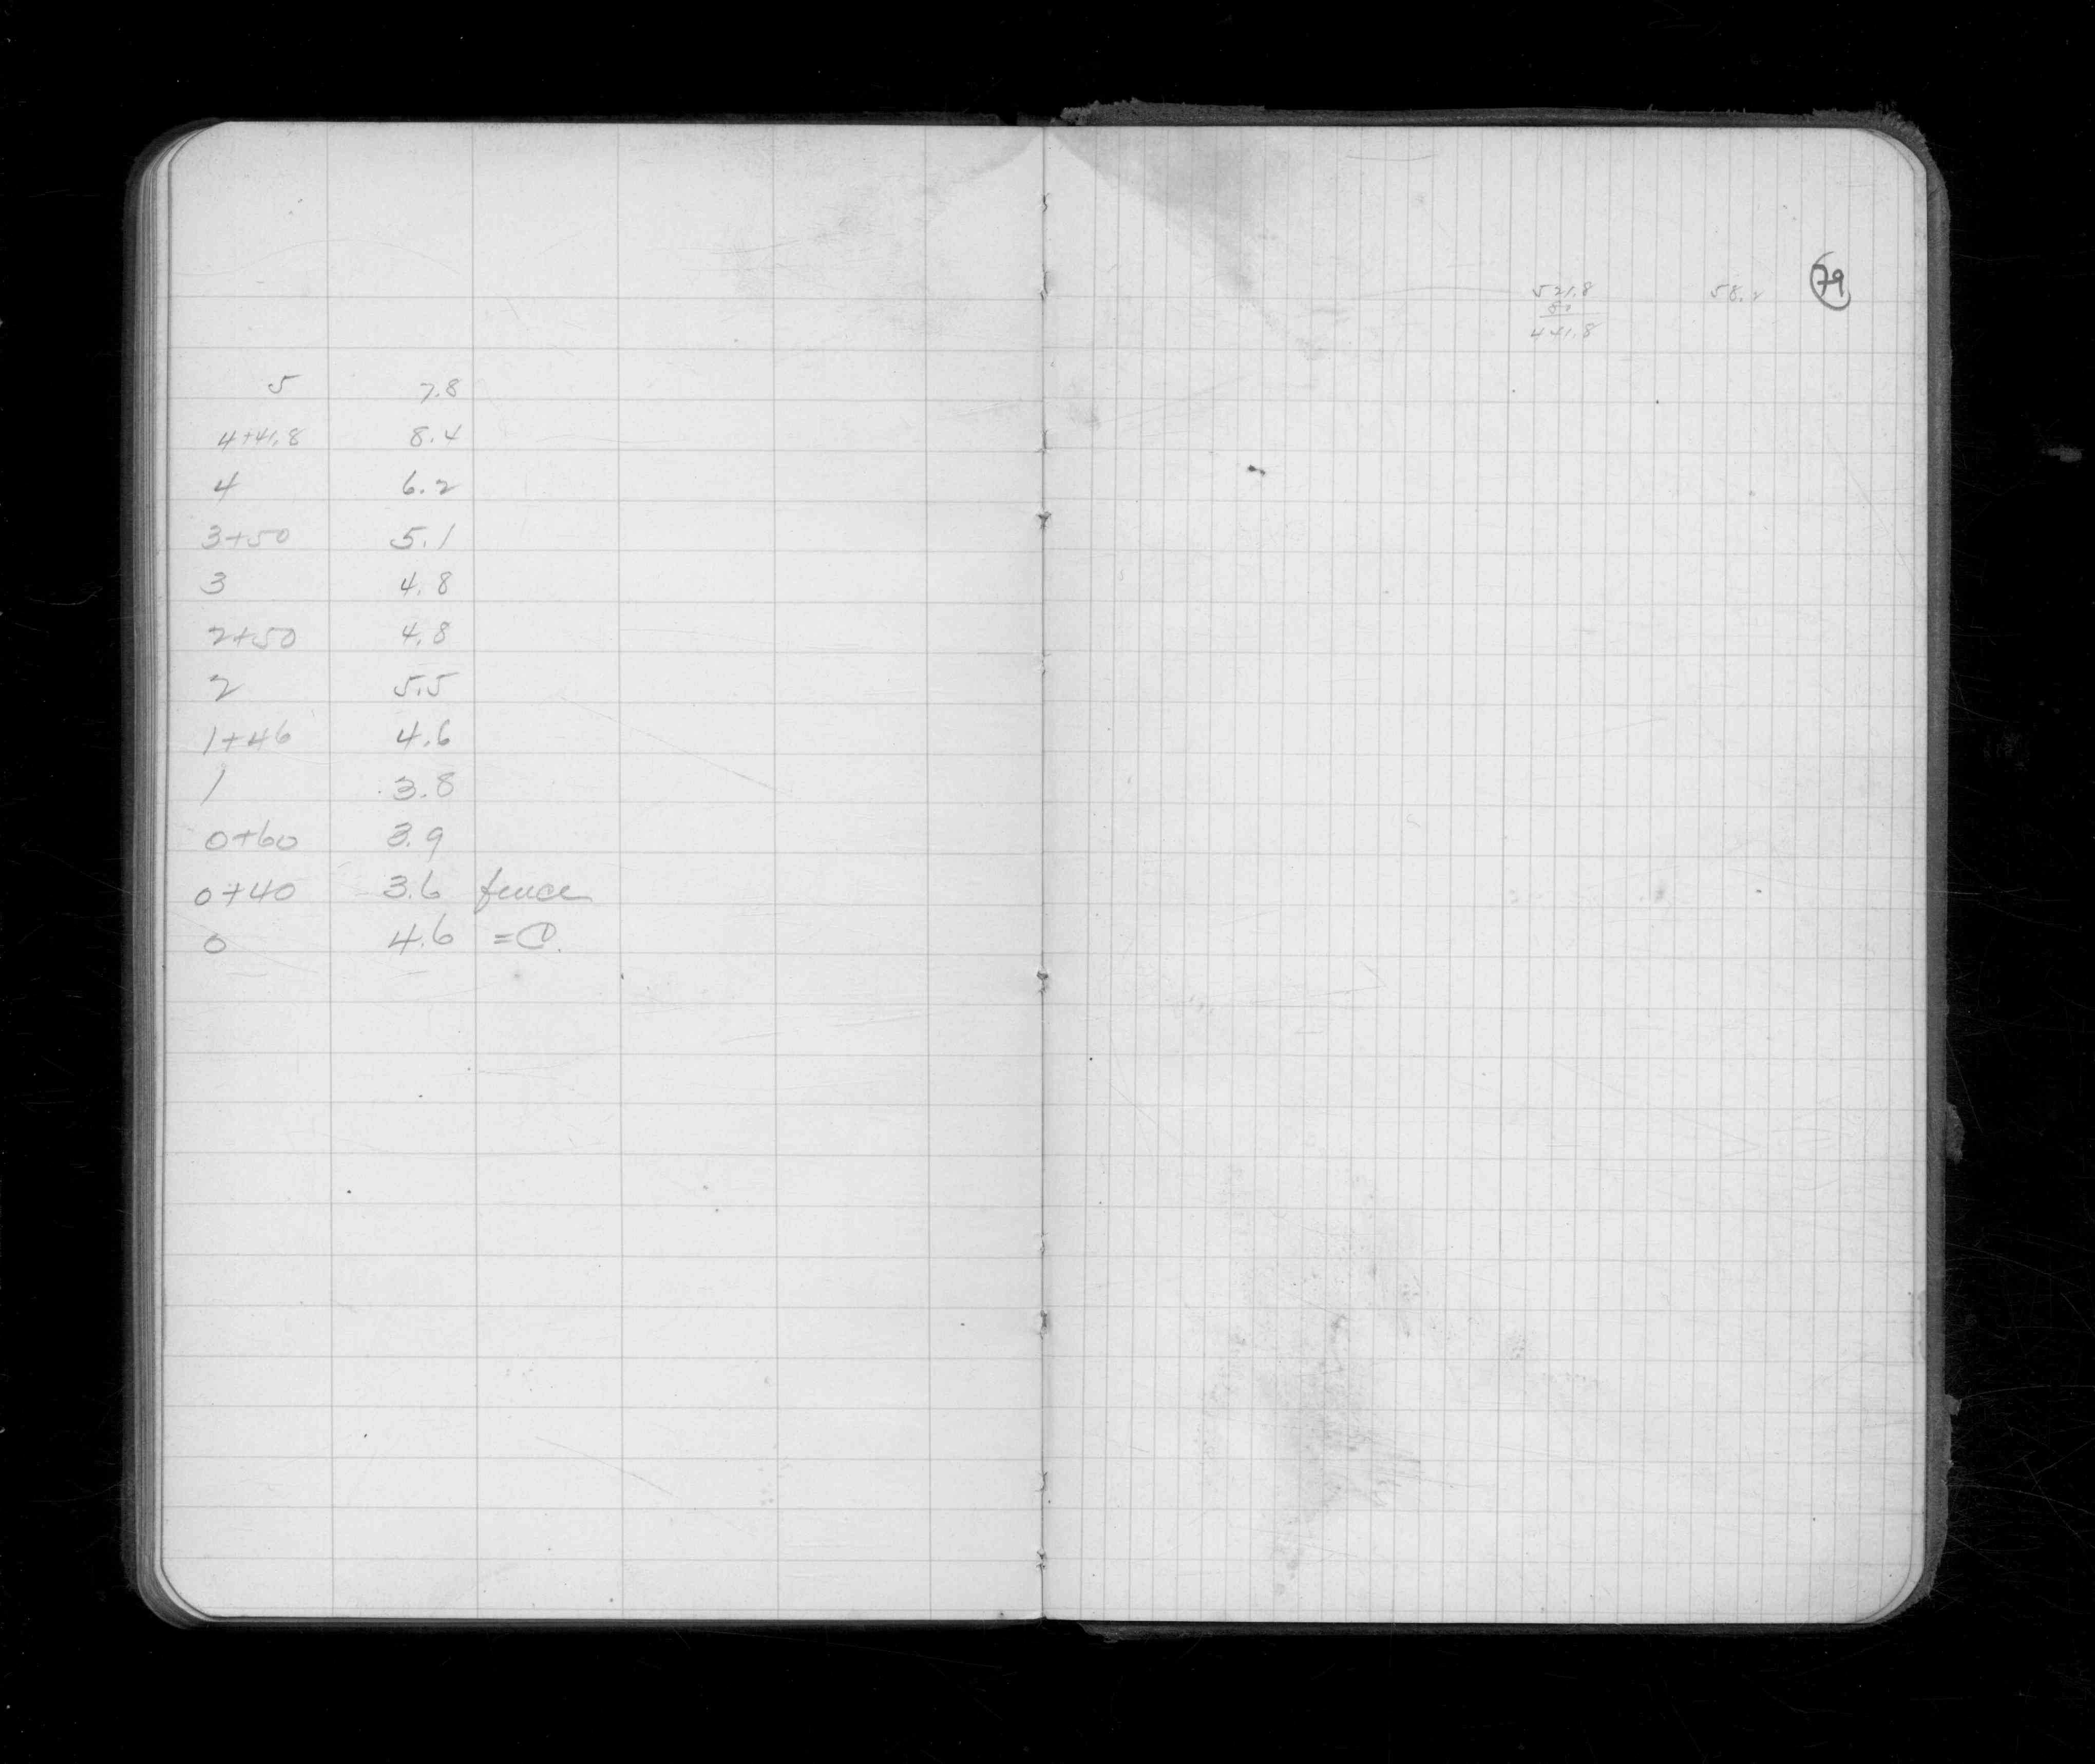 5 7.8
4+41.8 8.4
4 6.2
3+50 5.1
3 4.8
2+50 4.8
2 5.5
1+46 4.6
1 3.8
0+60 3.9
0+40 3.6 fence
0 4.6 =①
79
521.8 58.2
80
441.8